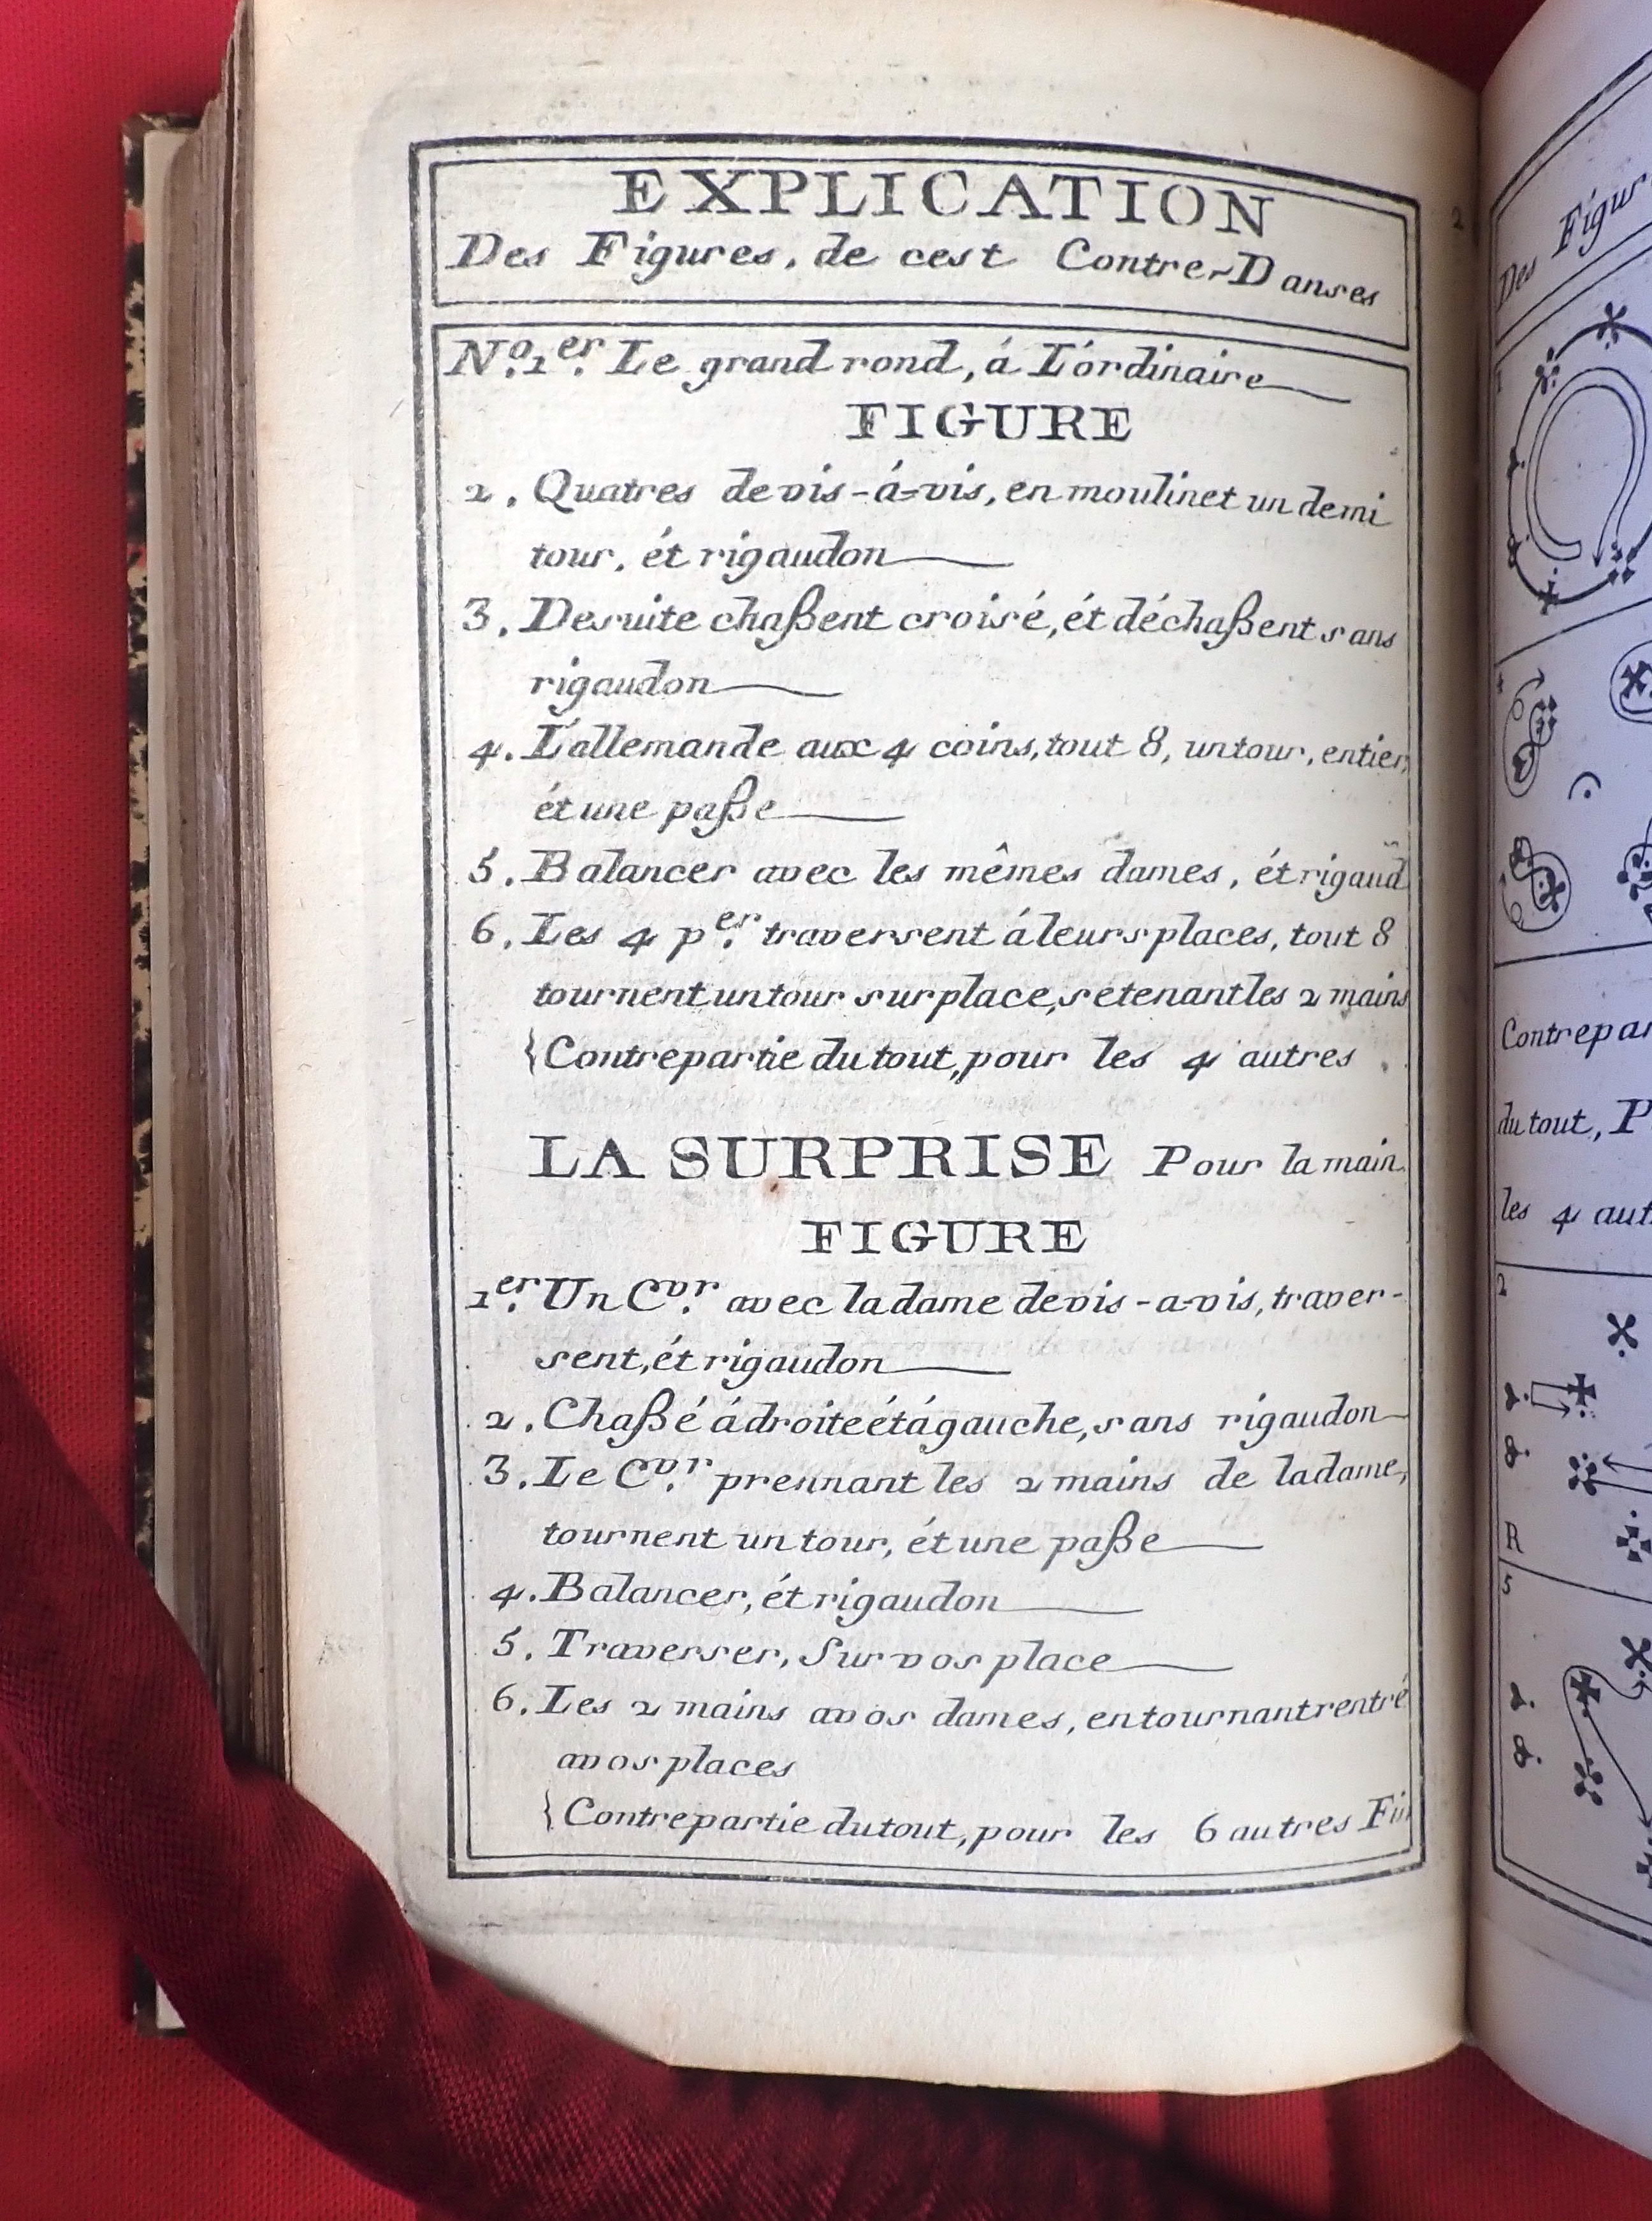 EXPLICATION
Des Figures, de cest Contre-Danses
No. 1er. Le grand rond, á L'órdinaire
FIGURE
2. Quatres de vis-á-vis, en moulinet un demi
tour, ét rigaudon
3. Desuite chaßent croisé, ét déchaßent sans
rigaudon
4. L'allemande aux 4 coins, tout 8, un tour, entier,
ét une paße
5. Balancer avec les mêmes dames, ét rigaud
6. Les 4 per. traversent á leurs places, tout 8
tournent un tour sur place, se tenant les 2 mains
{Contrepartie du tout, pour les 4 autres.
LA SURPRISE Pour la main
FIGURE
1er. Un Cvr. avec la dame de vis-a-vis, traver-
sent, ét rigaudon
2. Chaßé á droite ét á gauche, sans rigaudon
3. Le Cvr. prennant les 2 mains de la dame,
tournent un tour, ét une paße
4. Balancer, ét rigaudon
5. Traverser, Sur vos place
6. Les 2 mains a vos dames, en tournant rentré
a vos places
{Contrepartie du tout, pour les 6 autres Fin
2
Des Figur
1
Contrepar
du tout, P
les 4 aut
2
R
5